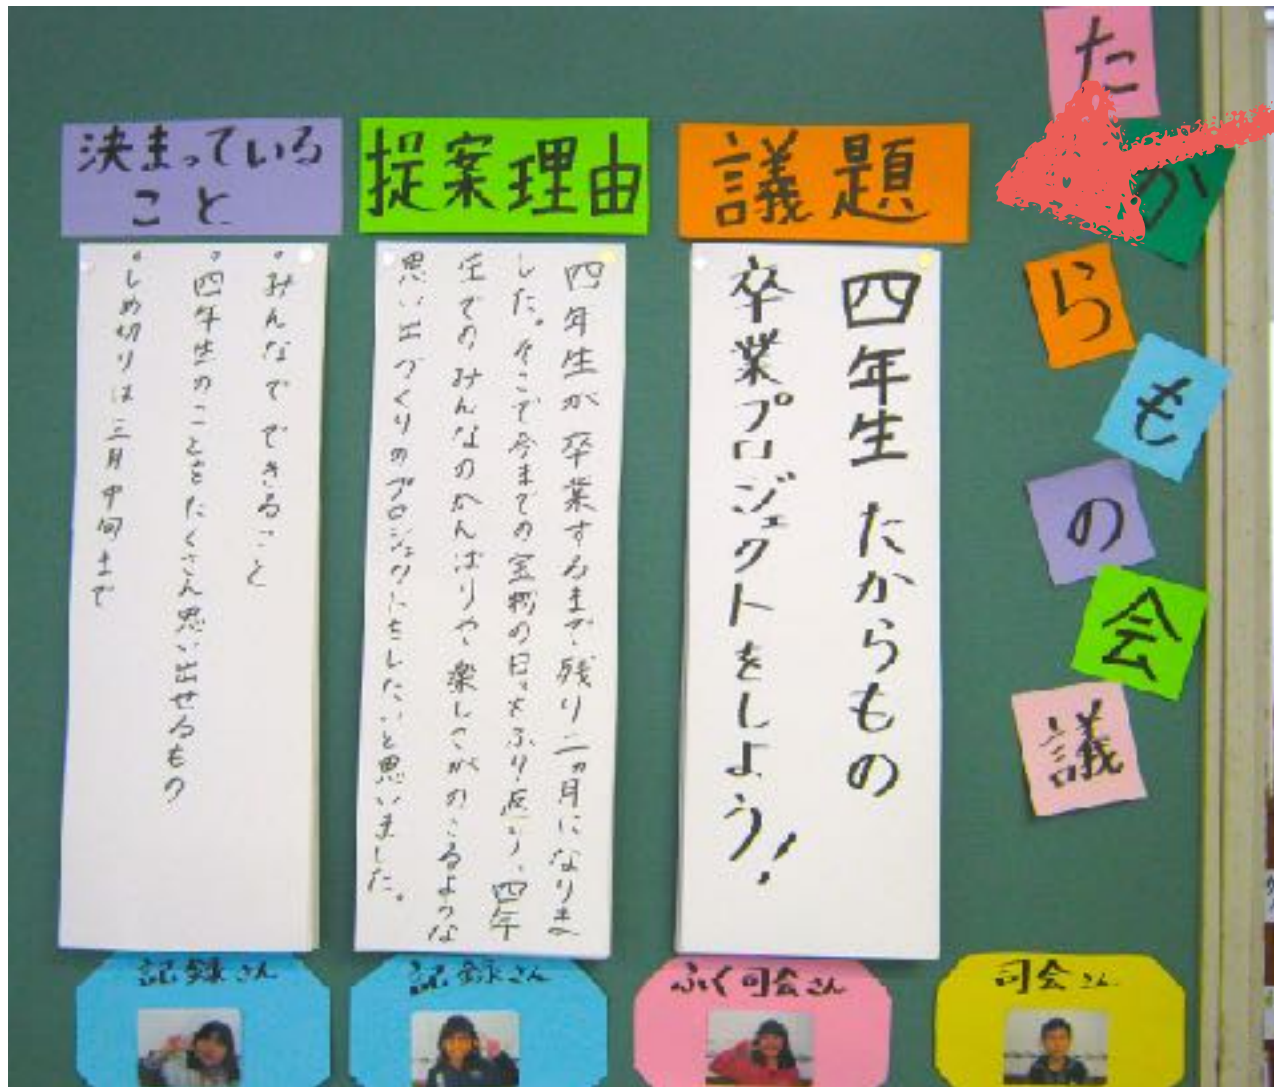 たからもの会議
議題
四年生 たからもの
卒業プロジェクトをしよう!
提案理由
四年生が卒業するまで残り二ヵ月になりま
した。そこで今までの宝物の日々をふり返り、四年
生でのみんなのがんばりや楽しさがのこるような
思い出づくりのプロジェクトをしたいと思いました。
決まっている
こと
。みんなでできること
。四年生のことをたくさん思い出せるもの
。しめ切りは三月中旬まで
司会さん
ふく司会さん
記録さん
記録さん